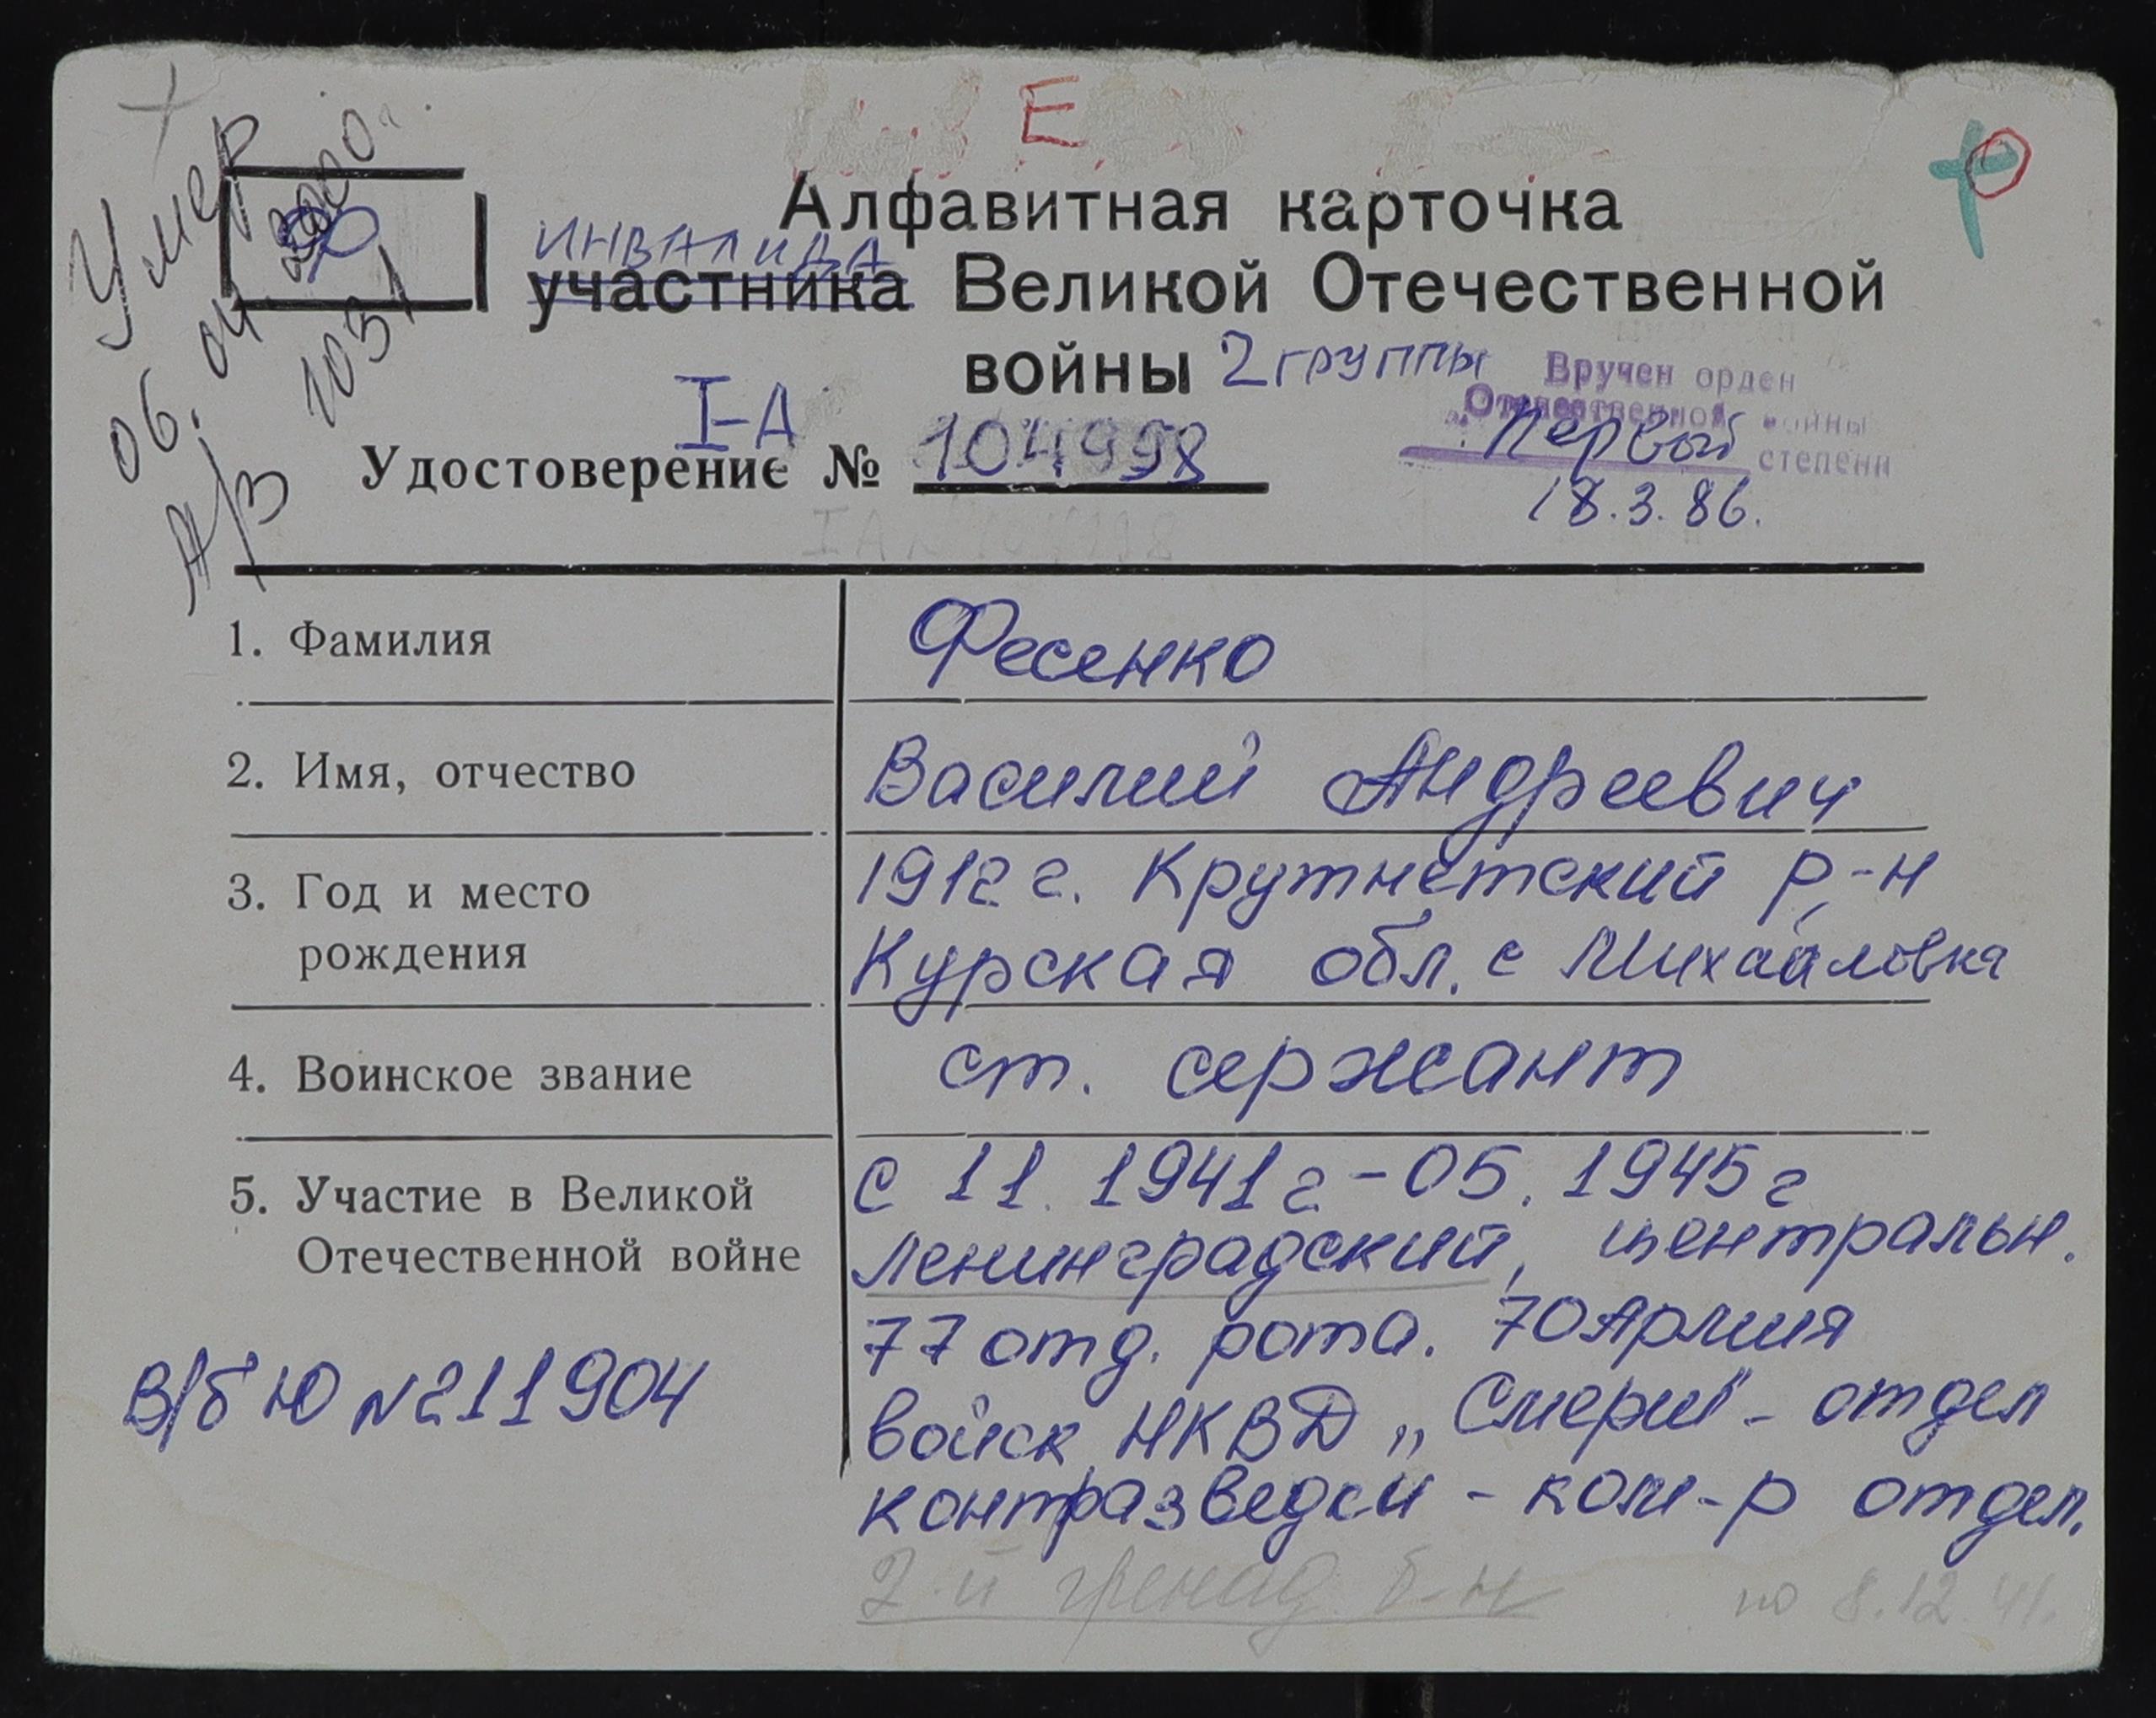 Е
Умер
06. 04.
А/З
Ф
Алфавитная карточка
ИНВАЛИДА
участника Великой Отечественной
войны 2 группы
Вручен орден
Отечественной войны
Первой степени
18.3.86.
I-А
Удостоверение № 104998
1. Фамилия
Фесенко
2. Имя, отчество
Василий Андреевич
3. Год и место
рождения
1912 г. Крутнетский р-н
Курская обл. с Михайловка
4. Воинское звание
ст. сержант
5. Участие в Великой
Отечественной войне
с 11. 1941г - 05. 1945г
Ленинградский, центральн.
77 отд. рота. 70 Армия
войск НКВД „Смерш" - отдел
контразведки - ком-р отдел.
2-й гренад. б-н по 8.12.41.
В/б Ю №211904